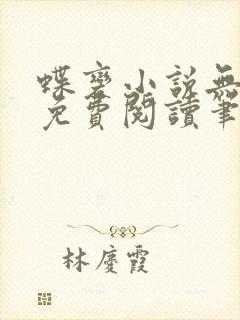 蝶變小說無
免費閱讀筆
林慶霞